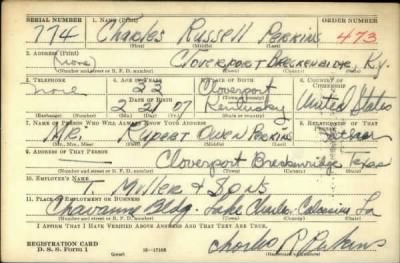 SERIAL NUMBER 1. NAME (Print) ORDER NUMBER
774 Charles Russell Perkins 473
(First) (Middle) (Last)
2. ADDRESS (Print)
(None) Cloverport Breckenridge, Ky.
(Number and street or R. F. D. number) (Town) (County) (State)
3. TELEPHONE 4. AGE IN YEARS 5. PLACE OF BIRTH 6. COUNTRY OF CITIZENSHIP
None 33 Cloverport
DATE OF BIRTH (Town or county)
2 21 07 Kentucky United States
(Exchange) (Number) (Mo.) (Day) (Yr.) (State or country)
7. NAME OF PERSON WHO WILL ALWAYS KNOW YOUR ADDRESS 8. RELATIONSHIP OF THAT PERSON
Mr. Rupert Owen Perkins
(Mr., Mrs., Miss) (First) (Middle) (Last)
9. ADDRESS OF THAT PERSON
Cloverport Breckenridge Texas
(Number and street or R. F. D. number) (Town) (County) (State)
10. EMPLOYER'S NAME
T. Miller & Sons
11. PLACE OF EMPLOYMENT OR BUSINESS
Chavanne Bldg. Lake Charles Calcasieu La
(Number and street or R. F. D. number) (Town) (County) (State)
I AFFIRM THAT I HAVE VERIFIED ABOVE ANSWERS AND THAT THEY ARE TRUE.
REGISTRATION CARD
D. S. S. Form 1 (over) 16—17105 Charles R. Perkins
(Registrant's signature)